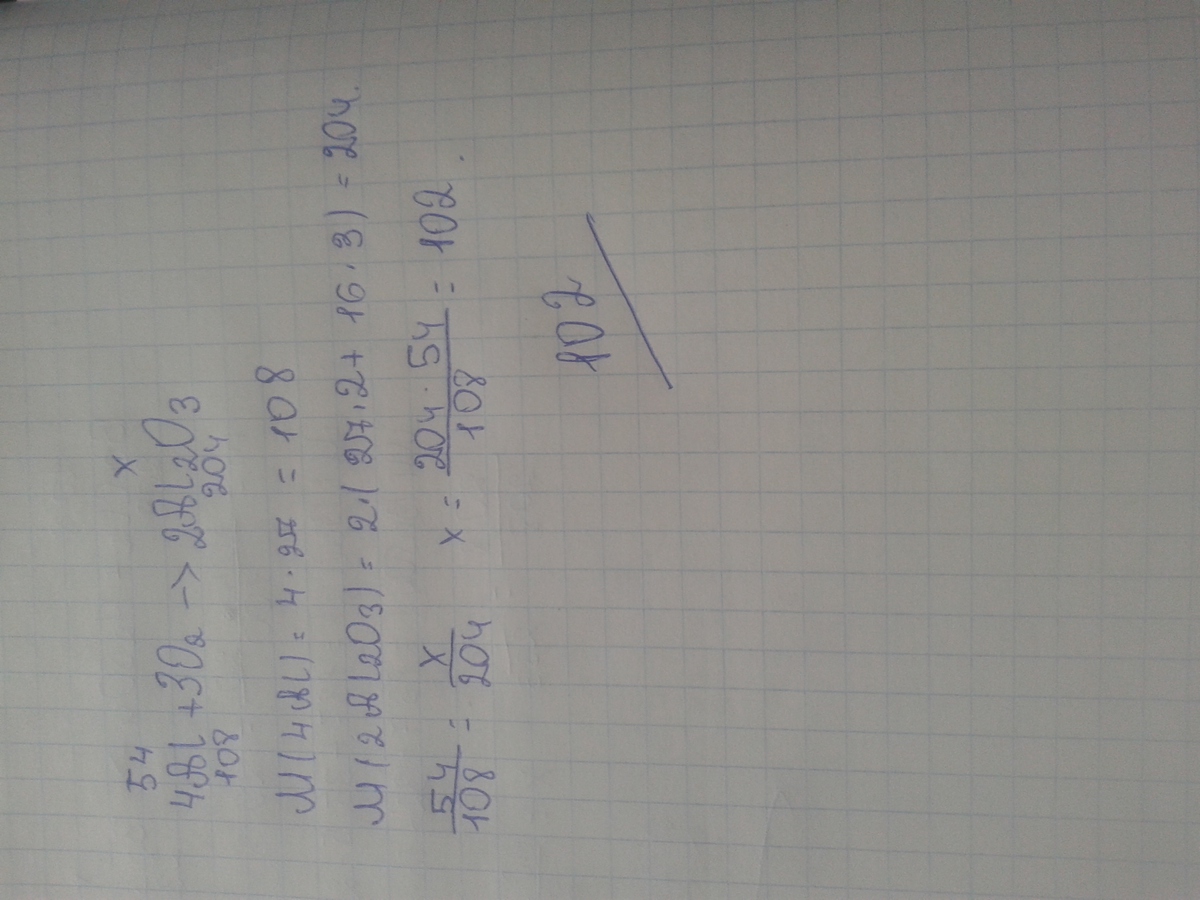 54 x
4Al + 3O2 -> 2Al2O3
108 204
M(4Al) = 4 · 27 = 108
M(2Al2O3) = 2·(27·2 + 16·3) = 204.
54/108 = x/204 x = 204 · 54/108 = 102.
102